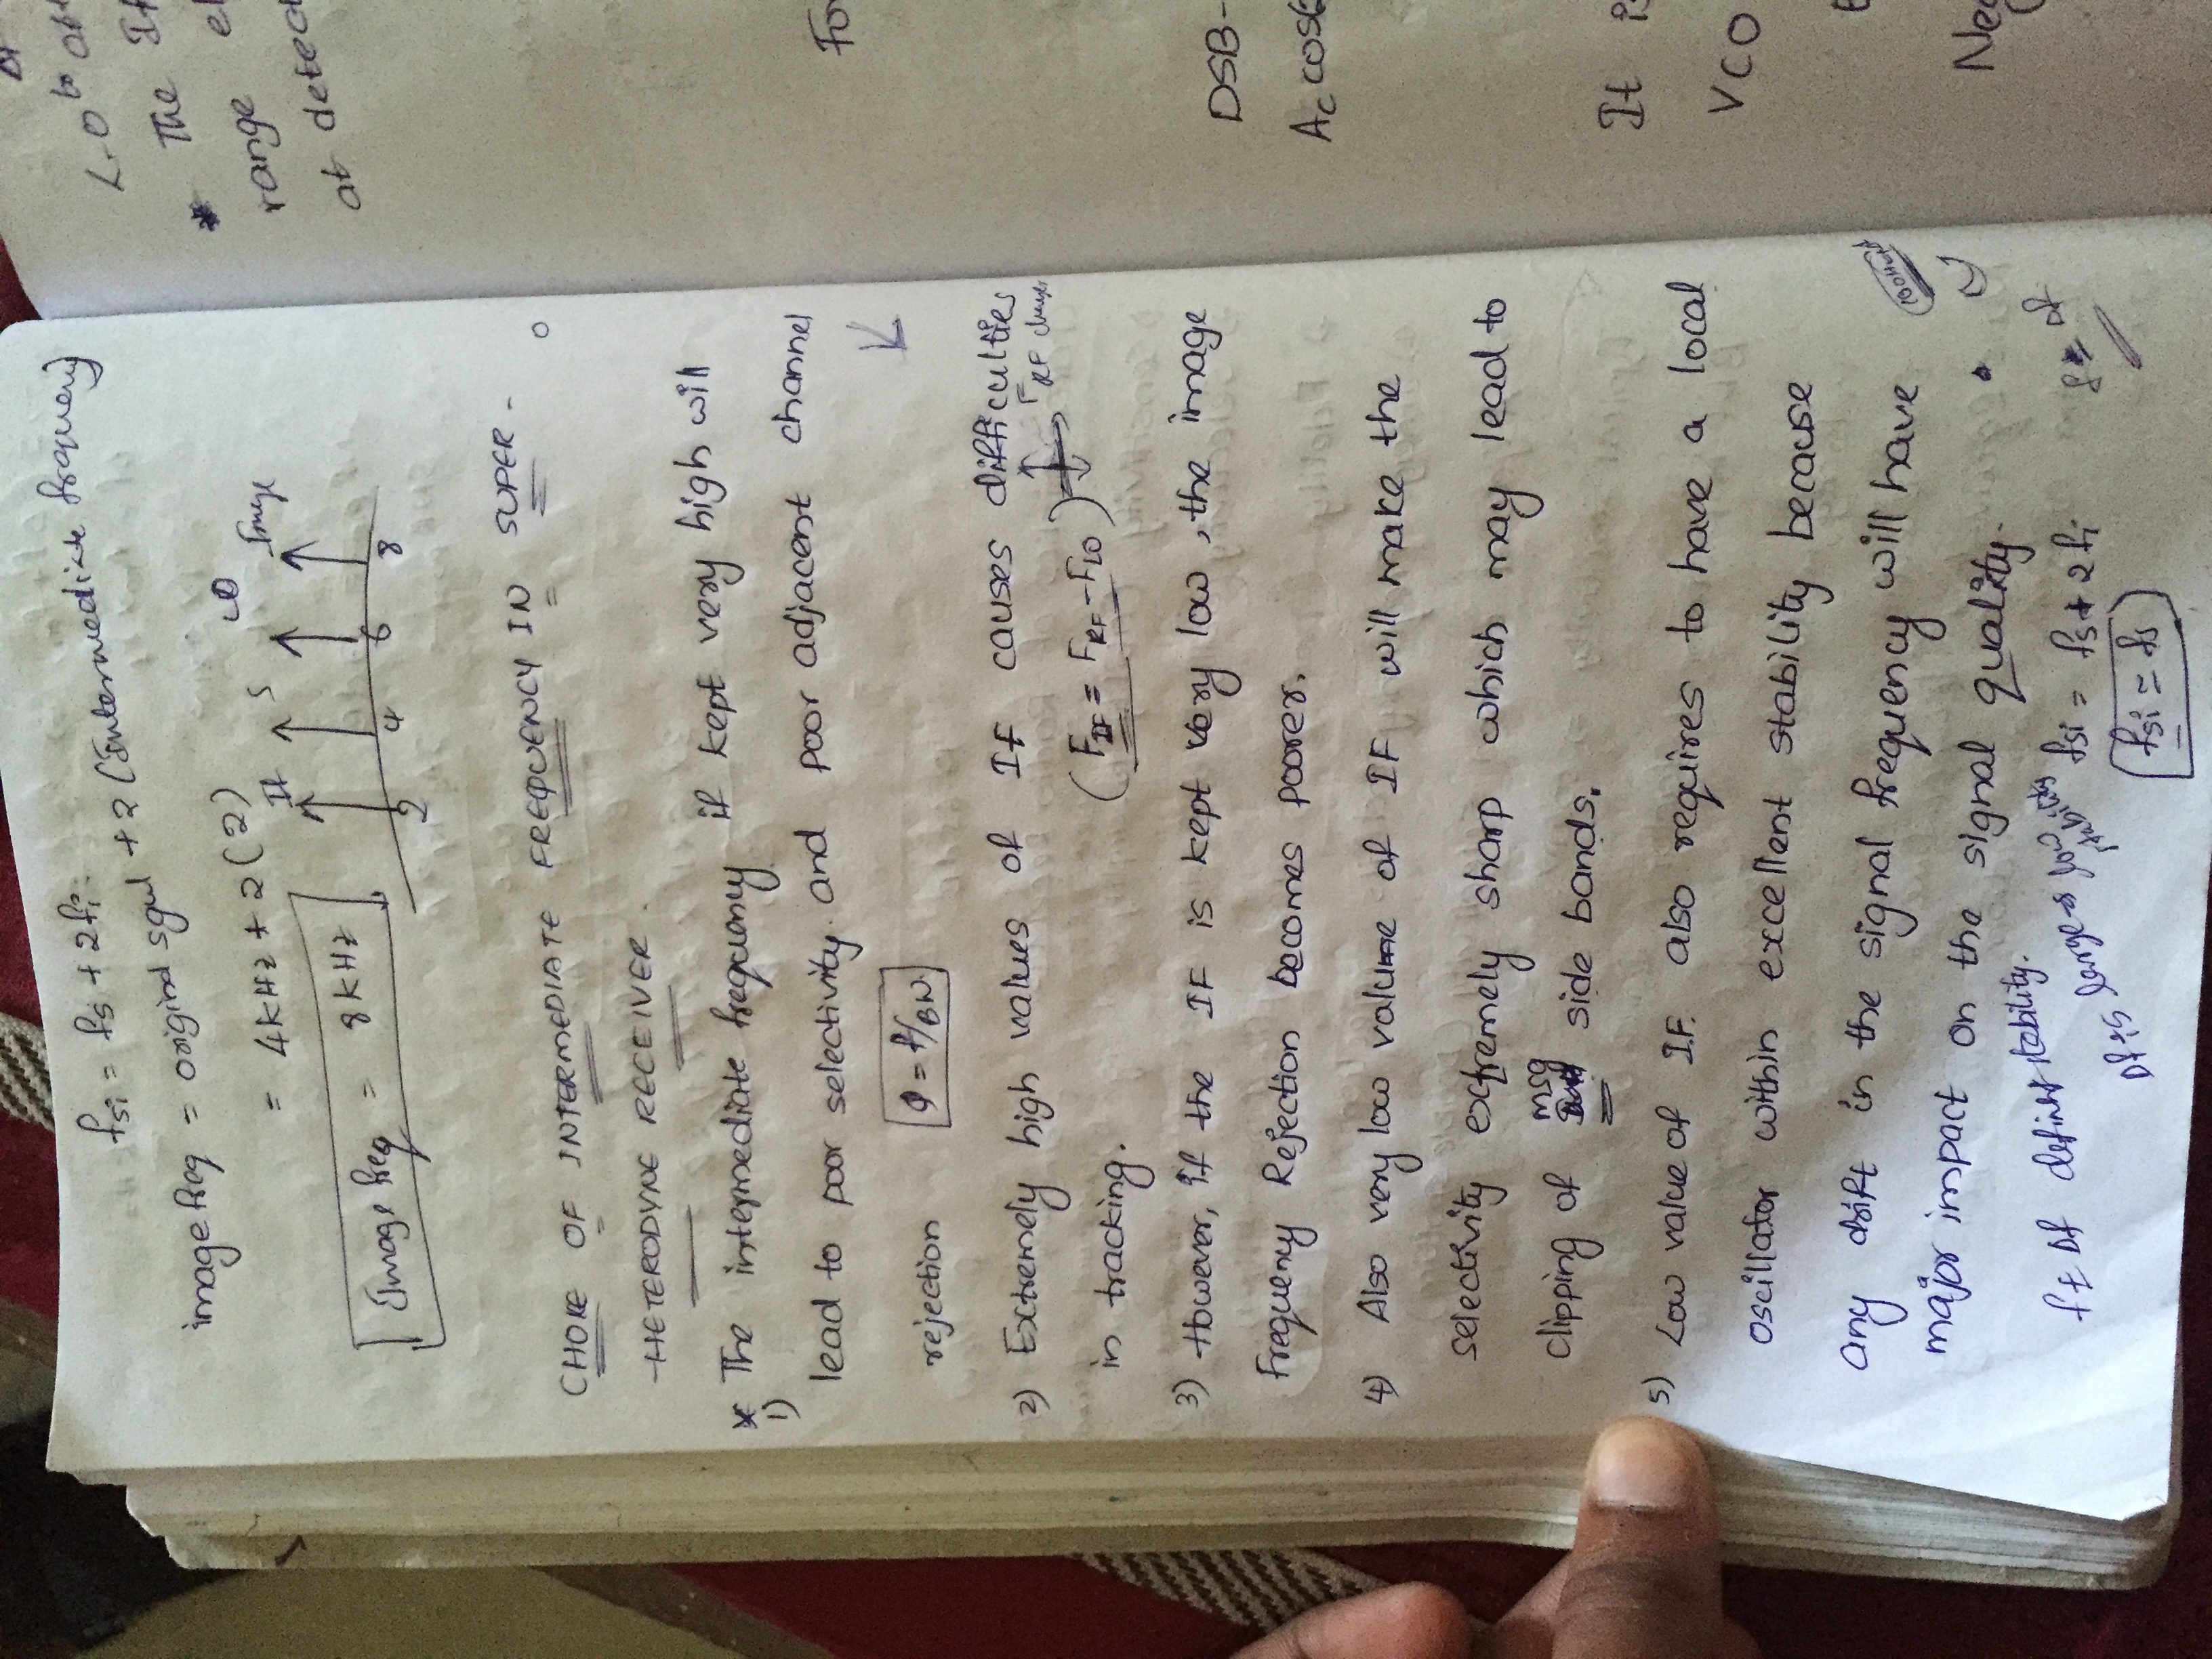 fsi = fs + 2fi.
image freq = origind sgnl + 2 (Intermediate frequency)
= 4KHz + 2(2)
Image freq = 8KHz
If S LO Image
2 4 6 8
CHOICE OF INTERMEDIATE FREQUENCY IN SUPER-
-HETERODYNE RECEIVER.
* The intermediate frequency if kept very high will
1)
lead to poor selectivity. and poor adjacent channel
rejection Q = f/BW.
2) Extremely high values of IF causes difficulties
in tracking. (FIF = FRF - FLO) FRF changes
3) However, if the IF is kept very low, the image
frequency Rejection becomes poorer.
4) Also very low value of IF will make the
selectivity extremely sharp which may lead to
clipping of msg side bands.
5) Low value of I.F. also requires to have a local
oscillator within excellent stability because
any drift in the signal frequency will have
major impact on the signal quality.
f ± Δf stability.
Δf is large → low
stability
fsi = fs + 2fi
fsi = fs
Δf
L.O to
* The If
range
at detect
For
DSB-
Ac cos
It is
VCO